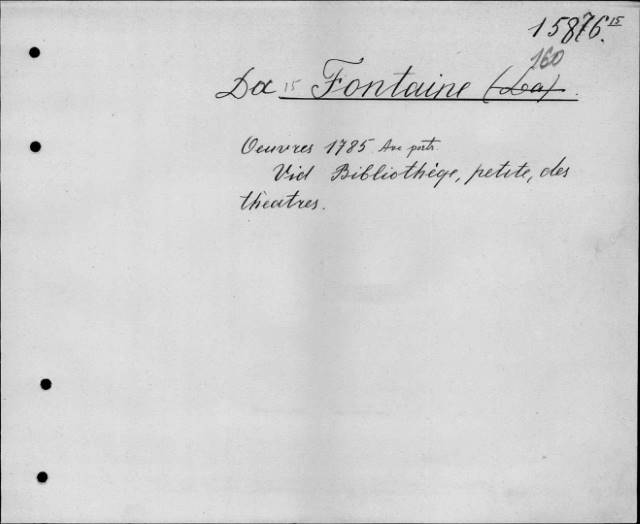 15876.15
160
La 15 Fontaine (La)
Oeuvres 1785. Ave portr.
Vid Bibliothèqe, petite, des
théatres.